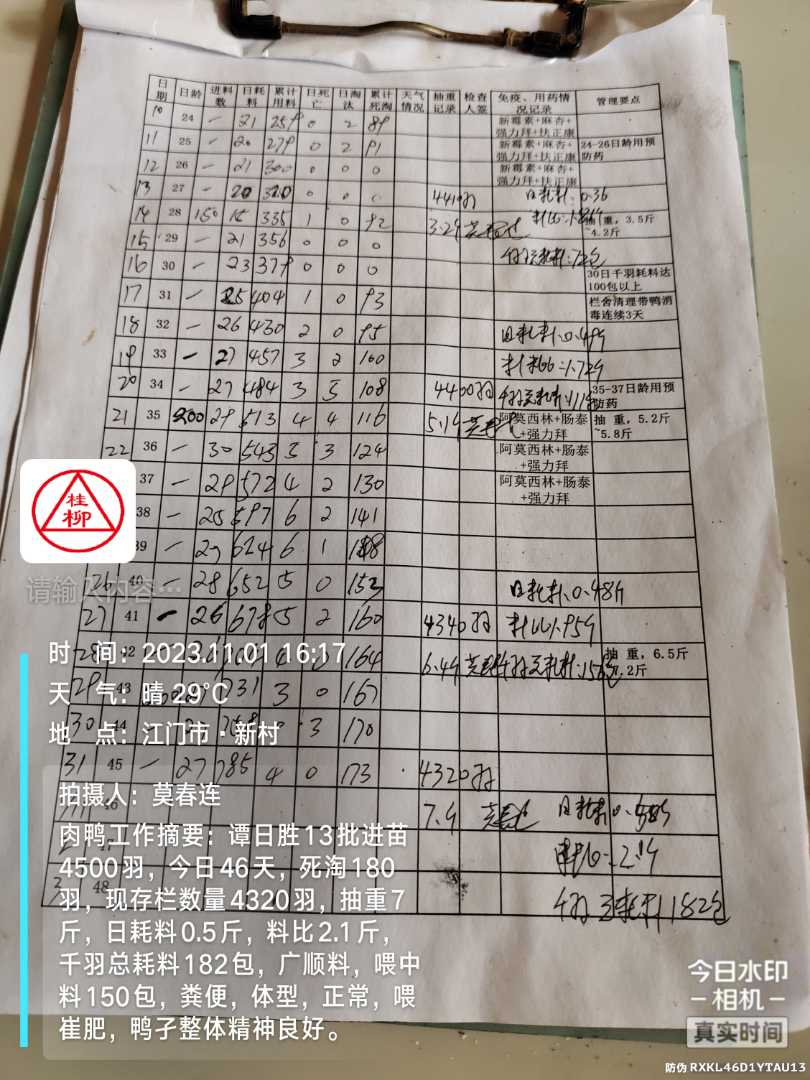 日期 日龄 进料数 日耗料 累计用料 日死亡 日淘汰 累计死淘 天气情况 抽重记录 检查人签 免疫、用药情况记录 管理要点
10 24 — 21 259 0 2 89 新霉素+麻杏+强力拜+扶正康
11 25 — 20 279 0 2 91 新霉素+麻杏+强力拜+扶正康 24-26日龄用预防药
12 26 — 21 300 0 0 0 新霉素+麻杏+强力拜+扶正康
13 27 — 20 320 0 0 0 441羽 日耗料:0.36
14 28 150 15 335 1 0 92 3.2斤 抽重,3.5斤~4.2斤
15 29 — 21 356 0 0 0
16 30 — 23 379 0 0 0 30日千羽耗料达100包以上
17 31 — 25 404 1 0 93 栏舍清理带鸭消毒连续3天
18 32 — 26 430 2 0 95 日耗料:0.49斤
19 33 — 27 457 3 2 100 料比:1.72斤
20 34 — 27 484 3 5 108 4400羽 35-37日龄用预防药
21 35 200 29 513 4 4 116 5.1斤 阿莫西林+肠泰+强力拜 抽重,5.2斤~5.8斤
22 36 — 30 543 3 3 124 阿莫西林+肠泰+强力拜
37 — 29 572 4 2 130 阿莫西林+肠泰+强力拜
38 — 25 597 6 2 141
39 — 27 624 6 1 148
26 40 — 28 652 5 0 153 日耗料:0.48斤
27 41 — 26 678 5 2 160 4340羽 料比1.95斤
28 42 164 6.4斤 抽重,6.5斤 .2斤
29 43 731 3 0 167
30 44 3 170
31 45 — 27 785 4 0 173 4320羽
46 7.斤 日耗料0.
料比:2.1斤
48 千羽总耗料182包
桂柳
请输入内容…
时 间:2023.11.01 16:17
天 气:晴 29℃
地 点:江门市·新村
拍摄人:莫春连
肉鸭工作摘要:谭日胜13批进苗
4500羽,今日46天,死淘180
羽,现存栏数量4320羽,抽重7
斤,日耗料0.5斤,料比2.1斤,
千羽总耗料182包,广顺料,喂中
料150包,粪便,体型,正常,喂
崔肥,鸭子整体精神良好。
今日水印
相机
真实时间
防伪 RXKL46D1YTAU13